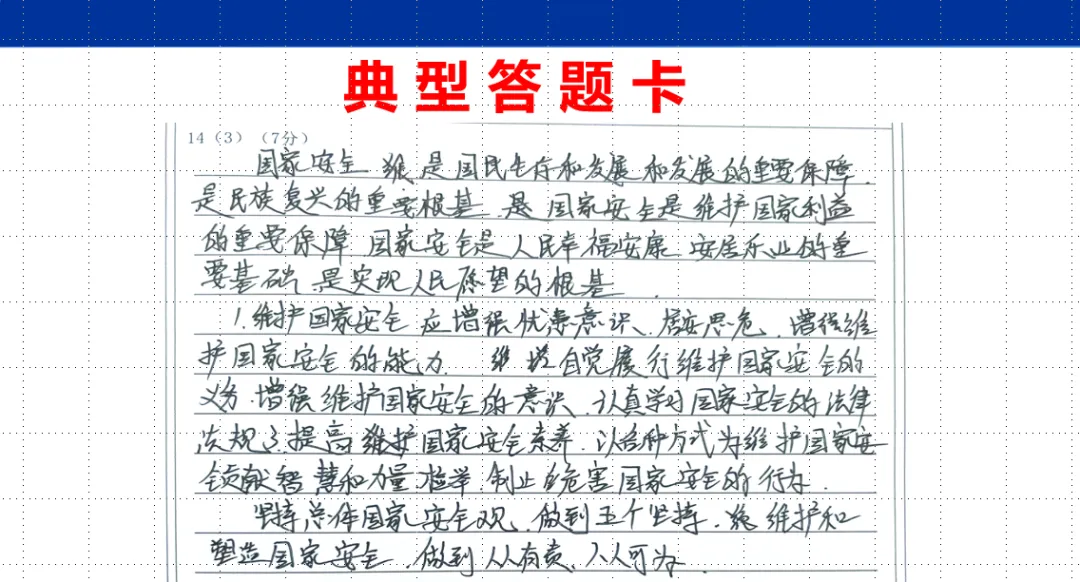 典型答题卡
14（3）（7分）
国家安全 是国民生存和发展和发展的重要保障，
是民族复兴的重要根基，是国家安全是维护国家利益
的重要保障，国家安全是人民幸福安康、安居乐业的重
要基础，是实现人民愿望的根基．
1.维护国家安全应增强忧患意识、居安思危，增强维
护国家安全的能力． 自觉履行维护国家安全的
义务，增强维护国家安全的意识、认真学习国家安全的法律
法规，提高维护国家安全素养，以各种方式为维护国家安
全贡献智慧和力量，检举、制止危害国家安全的行为．
坚持总体国家安全观，做到五个坚持． 维护和
塑造国家安全，做到人人有责、人人可为．